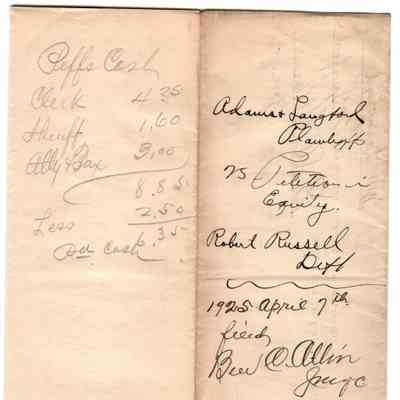 Peffs Cash
Clerk 4.25
Sheriff 1.60
Atty Tax 3.00
8.85
Less 2.50
Pd Cash 6.35
Adams & Langford
Plaintiffs
vs Petition in
Equity.
Robert Russell
Deft
1925 April 7th
filed
Ben O. Allin